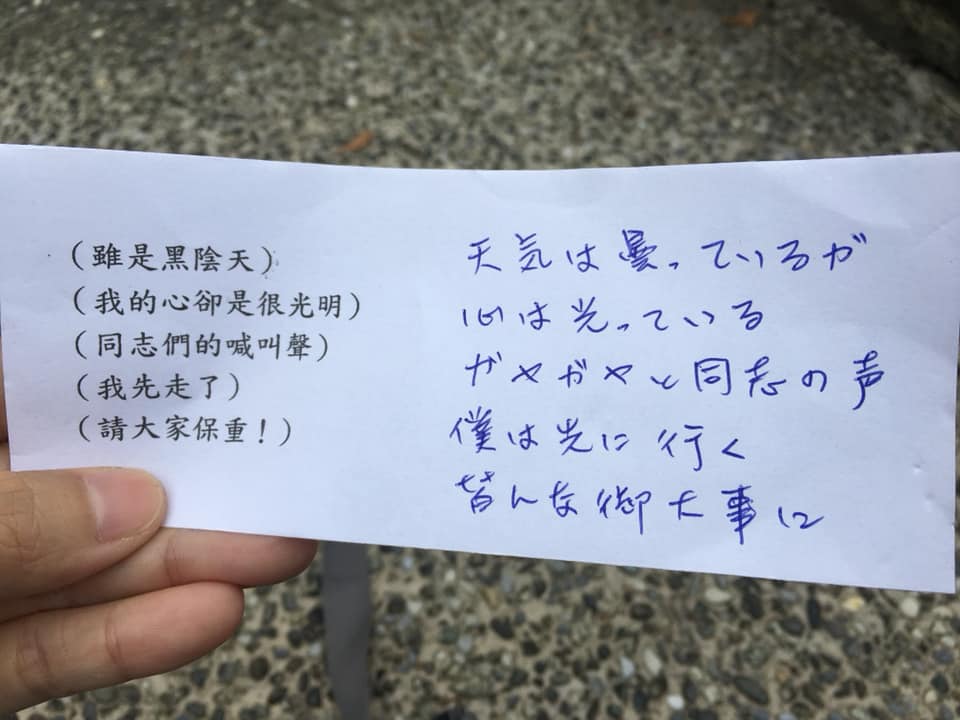 (雖是黑陰天)
(我的心卻是很光明)
(同志們的喊叫聲)
(我先走了)
(請大家保重！)
天気は曇っているが
心は光っている
ガヤガヤと同志の声
僕は先に行く
皆んな御大事に